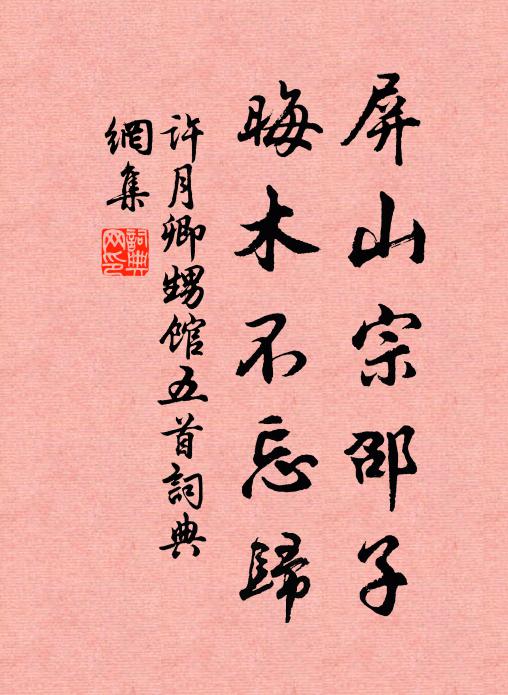 屏山宗邵子
晦木不忘歸
許月卿甥館五首詞典
網集
詞典
网印